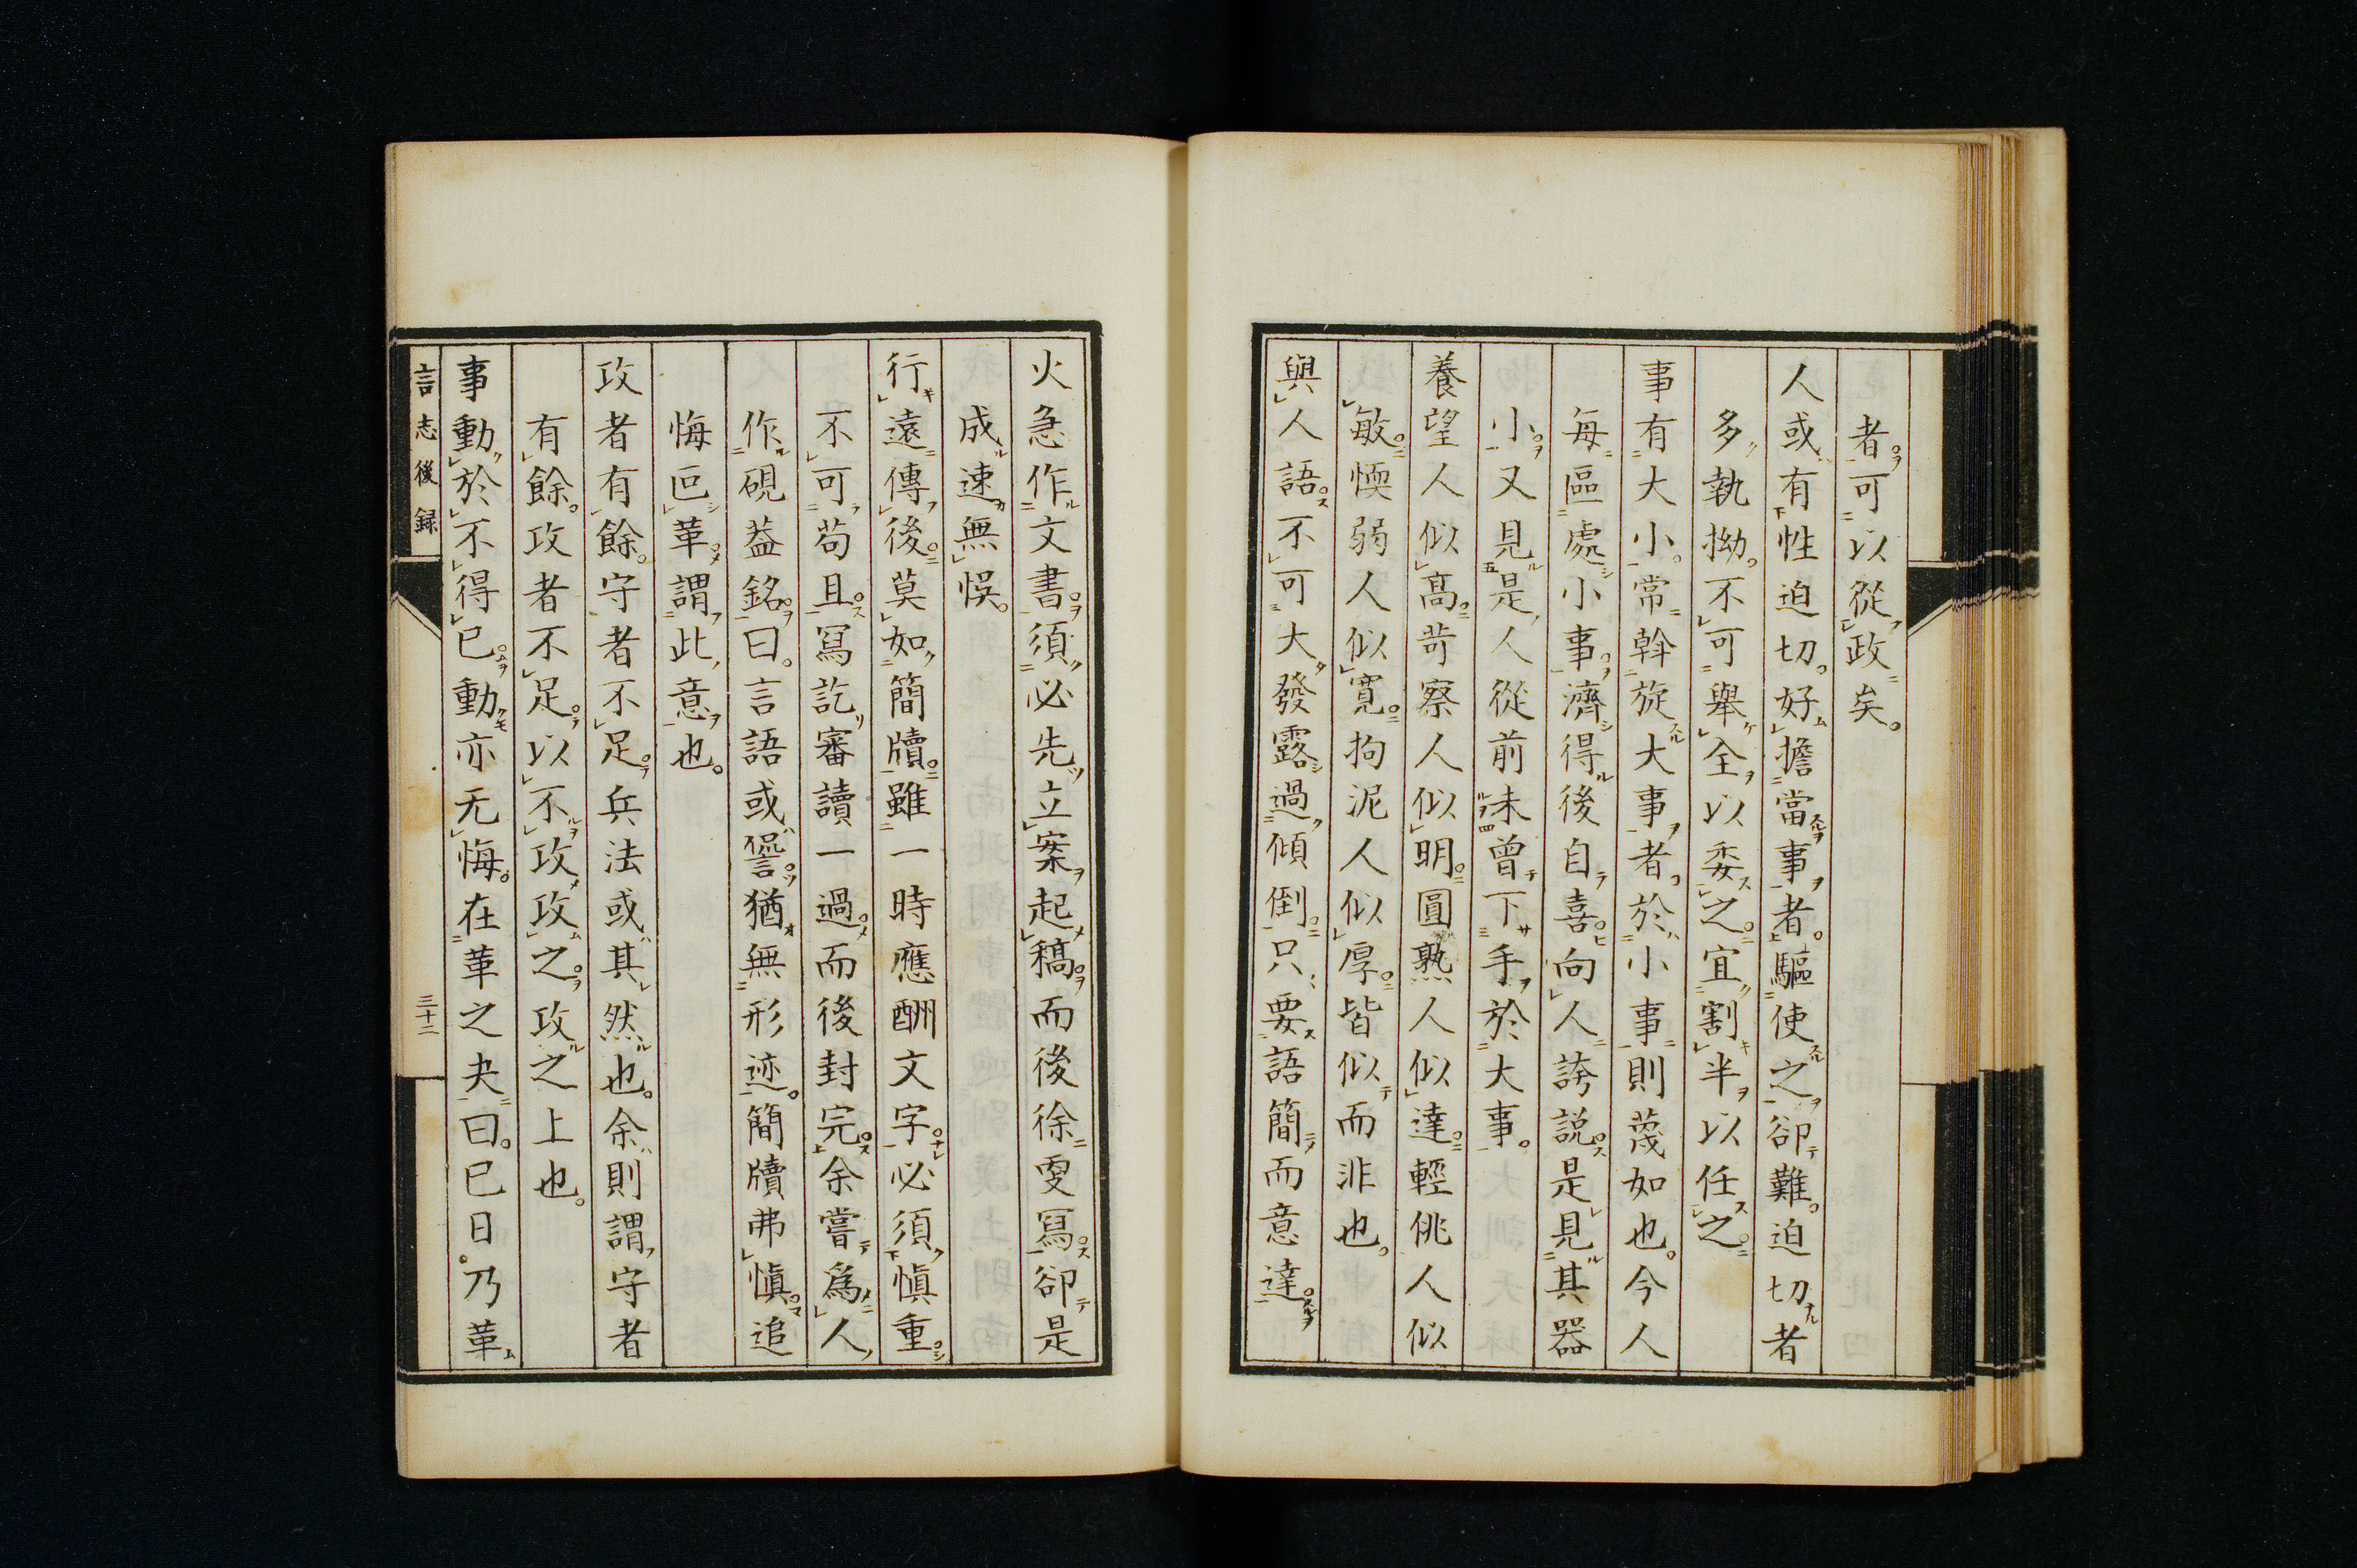 者可以從政矣。
人或有性迫切。好擔當事者。驅使之卻難。迫切者
多執拗。不可舉全以委之。宜割半以任之。
事有大小。常斡旋大事者。於小事則蔑如也。今人
每區處小事。濟得後自喜向人誇說。是見其器
小。又見是人從前未曾下手於大事。
養望人似高。苛察人似明。圓熟人似達。輕佻人似
敏。愞弱人似寬。拘泥人似厚。皆似而非也。
與人語。不可大發露過傾倒。只要語簡而意達。
火急作文書。須必先立案起稿。而後徐叓寫。卻是
成速無悞。
行遠傳後。莫如簡牘。雖一時應酬文字。必須慎重。
不可苟且。寫訖審讀一過。而後封完。余嘗為人
作硯葢銘。曰。言語或諐。猶無形迹。簡牘弗慎。追
悔叵革。謂此意也。
攻者有餘。守者不足。兵法或其然也。余則謂。守者
有餘。攻者不足。以不攻攻之。攻之上也。
事動於不得已。動亦无悔。在革之夬。曰。已日。乃革
言志後録
三十二